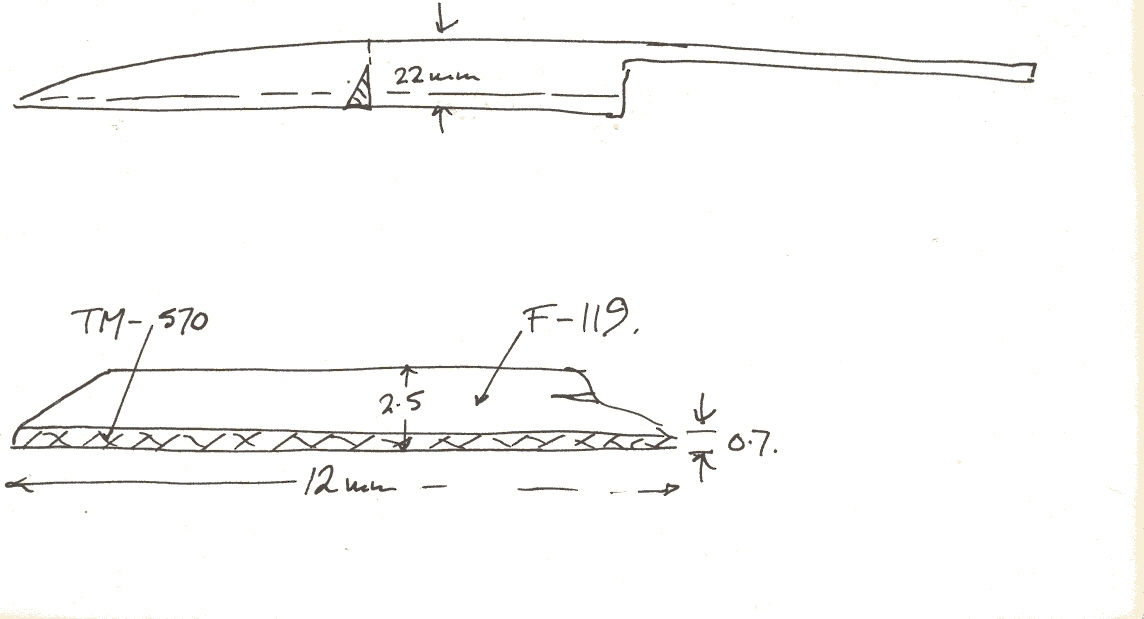 22mm
TM-570
F-119.
2.5
0.7.
12mm